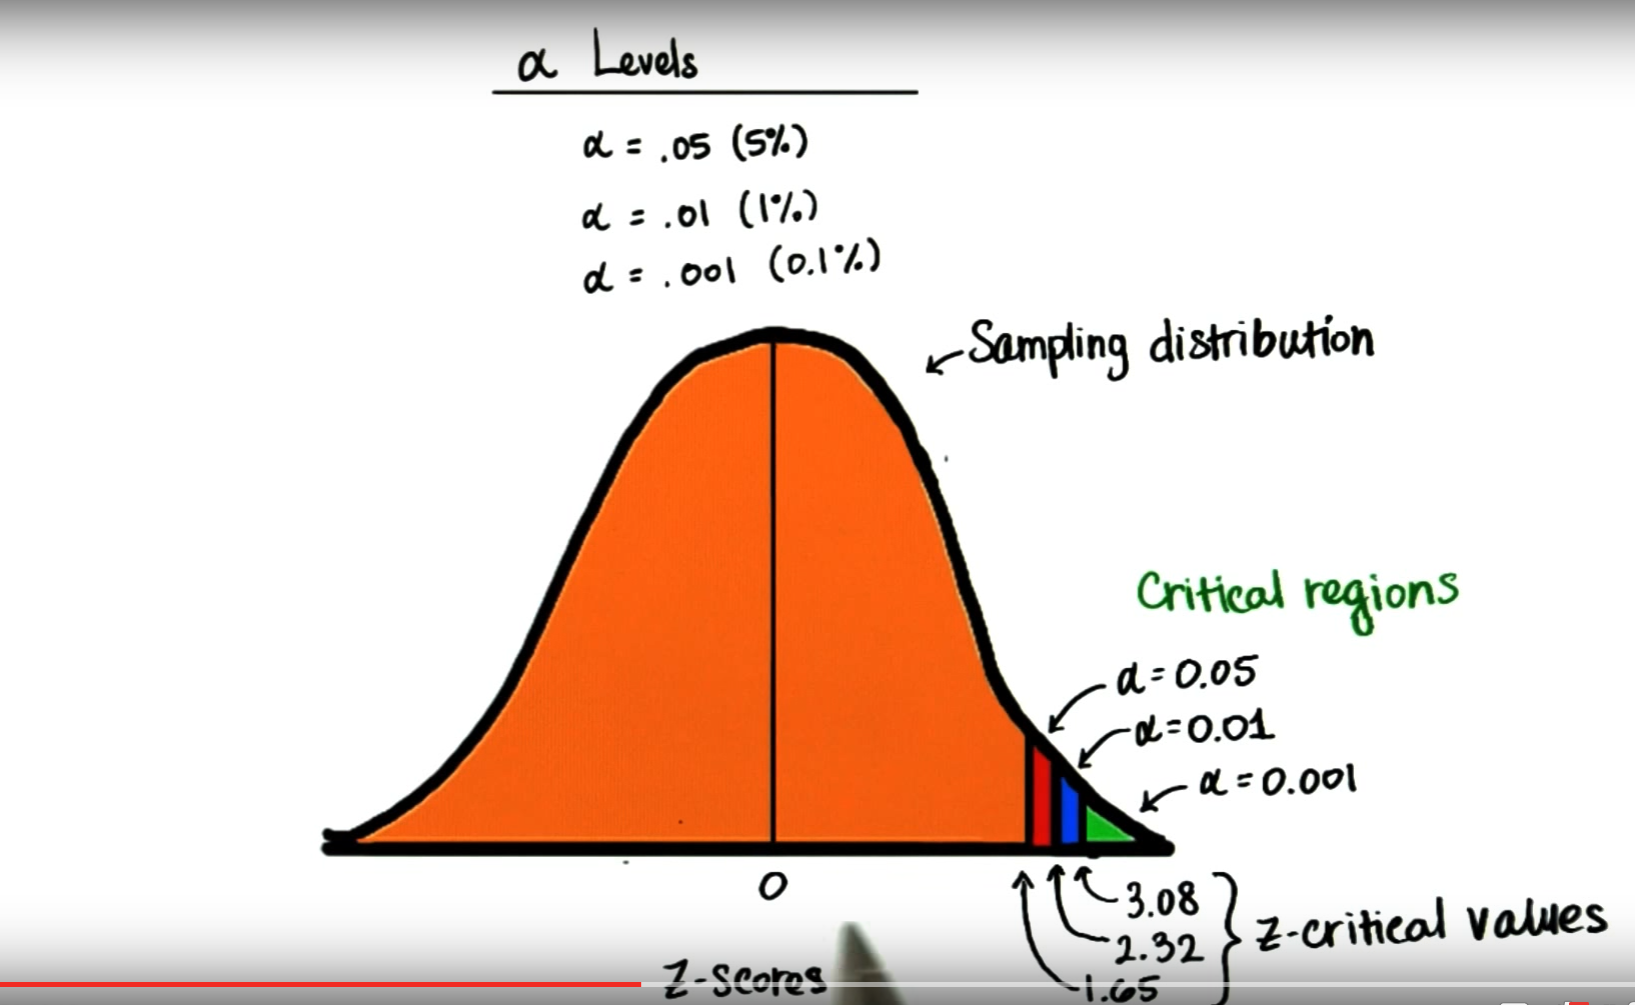 α Levels
α = .05 (5%)
α = .01 (1%)
α = .001 (0.1%)
Sampling distribution
Critical regions
α = 0.05
α = 0.01
α = 0.001
0
3.08
2.32
1.65
Z-critical values
Z-scores